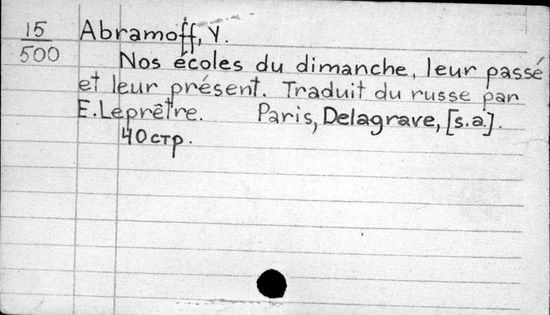 15 Abramoff, Y.
500 Nos écoles du dimanche, leur passé
et leur présent. Traduit du russe par
E. Leprêtre. Paris, Delagrave, [s.a.].
40 стр.